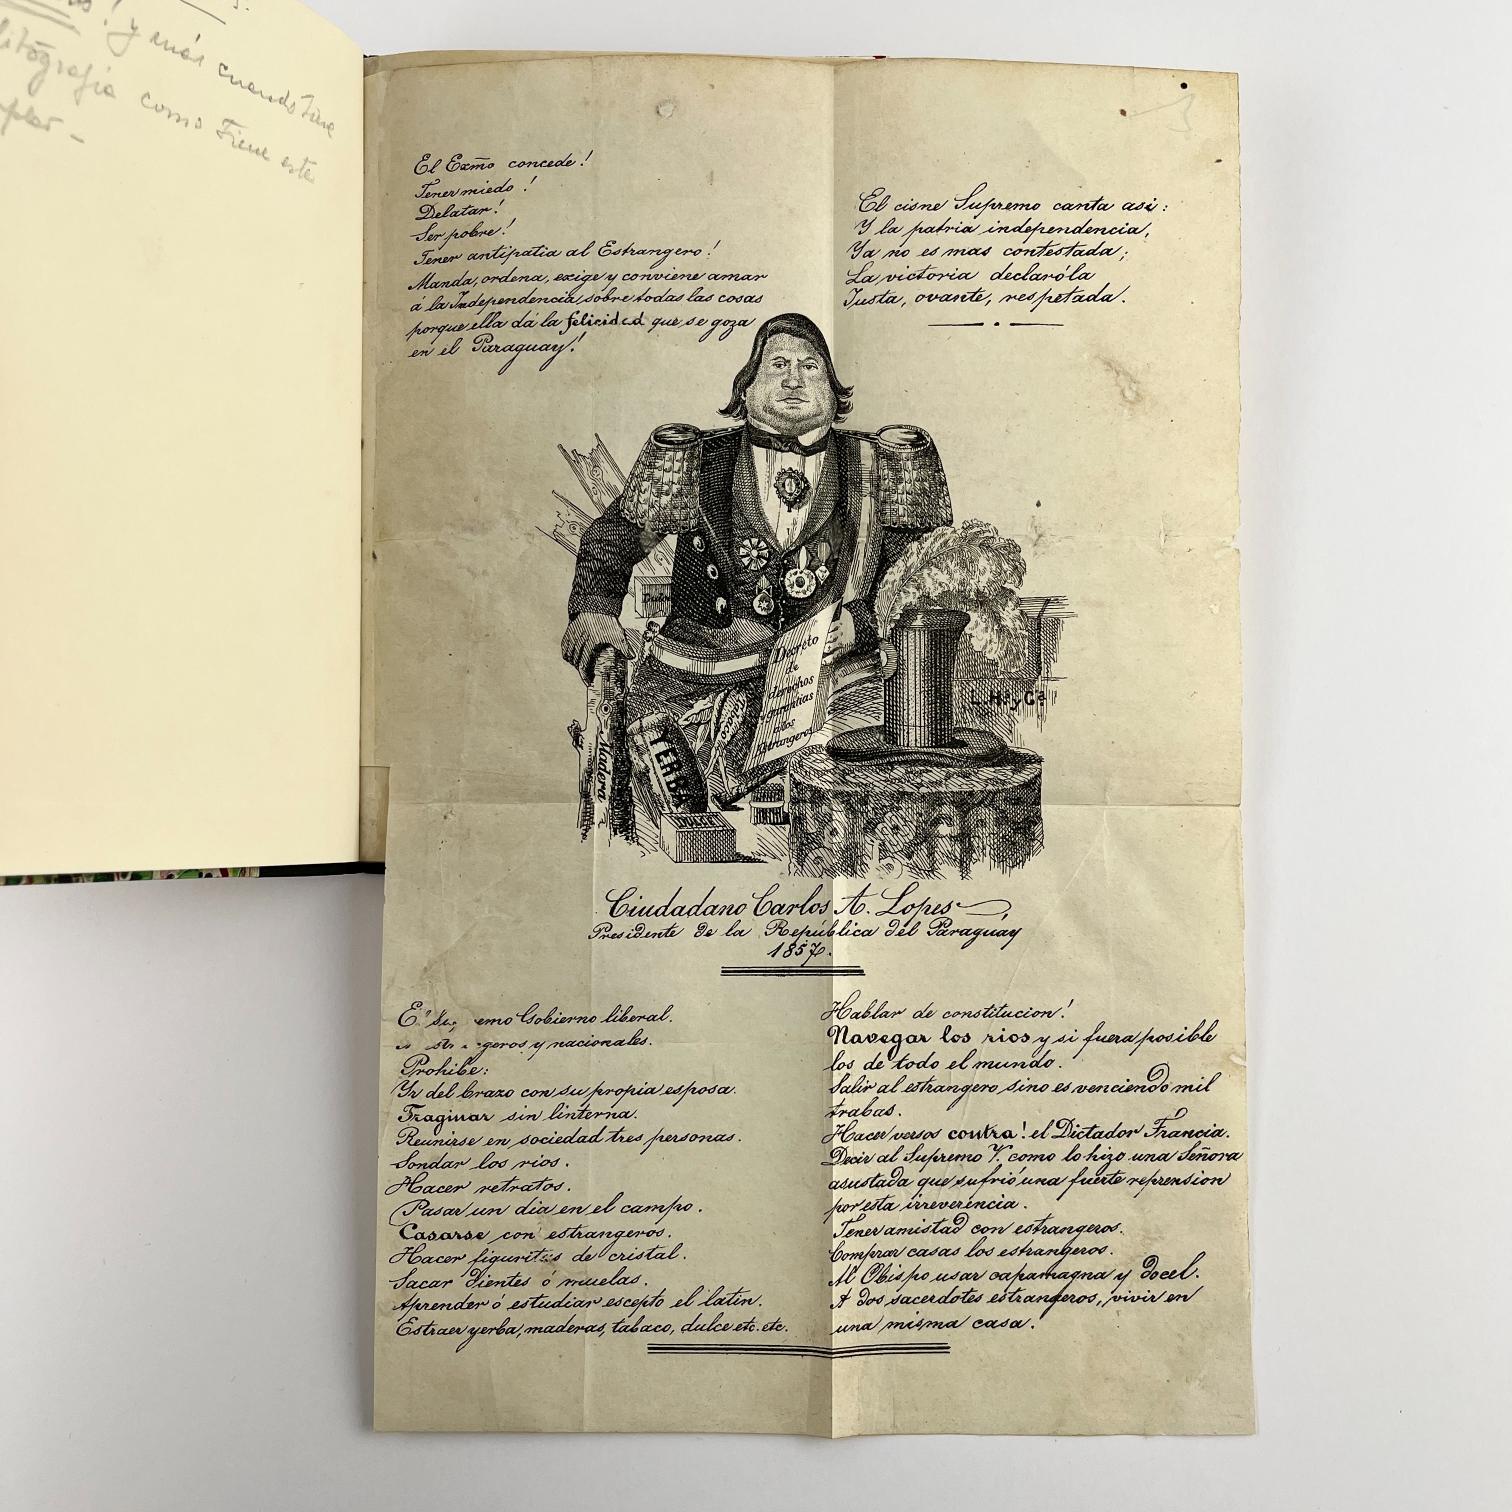 y más cuando tiene
litografia como tiene este
El Exmo concede!
Tener miedo!
Delatar!
Ser pobre!
Tener antipatia al Estrangero!
Manda, ordena, exige y conviene amar
á la Independencia sobre todas las cosas
porque ella dá la felicidad que se goza
en el Paraguay!
El cisne Supremo canta asi:
Y la patria independencia,
Ya no es mas contestada;
La victoria declaróla
Justa, ovante, respetada.
Decreto
de
derechos
garantias
a los
Estrangeros
L. Hs y Ca
Madera
YERBA
Tabaco
DULCE
Ciudadano Carlos A. Lopes
Presidente de la República del Paraguay
1857.
emo Gobierno liberal.
geros y nacionales.
Prohibe:
Yr del brazo con su propia esposa.
Traginar sin linterna.
Reunirse en sociedad tres personas.
Sondar los rios.
Hacer retratos.
Pasar un dia en el campo.
Casarse con estrangeros.
Hacer figuritas de cristal.
Sacar dientes ó muelas.
Aprender ó estudiar escepto el latin.
Estraer yerba, maderas, tabaco, dulce etc. etc.
Hablar de constitucion!
Navegar los rios y si fuera posible
los de todo el mundo.
Salir al estrangero sino es venciendo mil
trabas.
Hacer versos contra! el Dictador Francia.
Decir al Supremo V. como lo hizo una Señora
asustada que sufrió una fuerte reprension
por esta irreverencia.
Tener amistad con estrangeros.
Comprar casas los estrangeros.
Al Obispo usar capamagna y docel.
A dos sacerdotes estrangeros, vivir en
una misma casa.